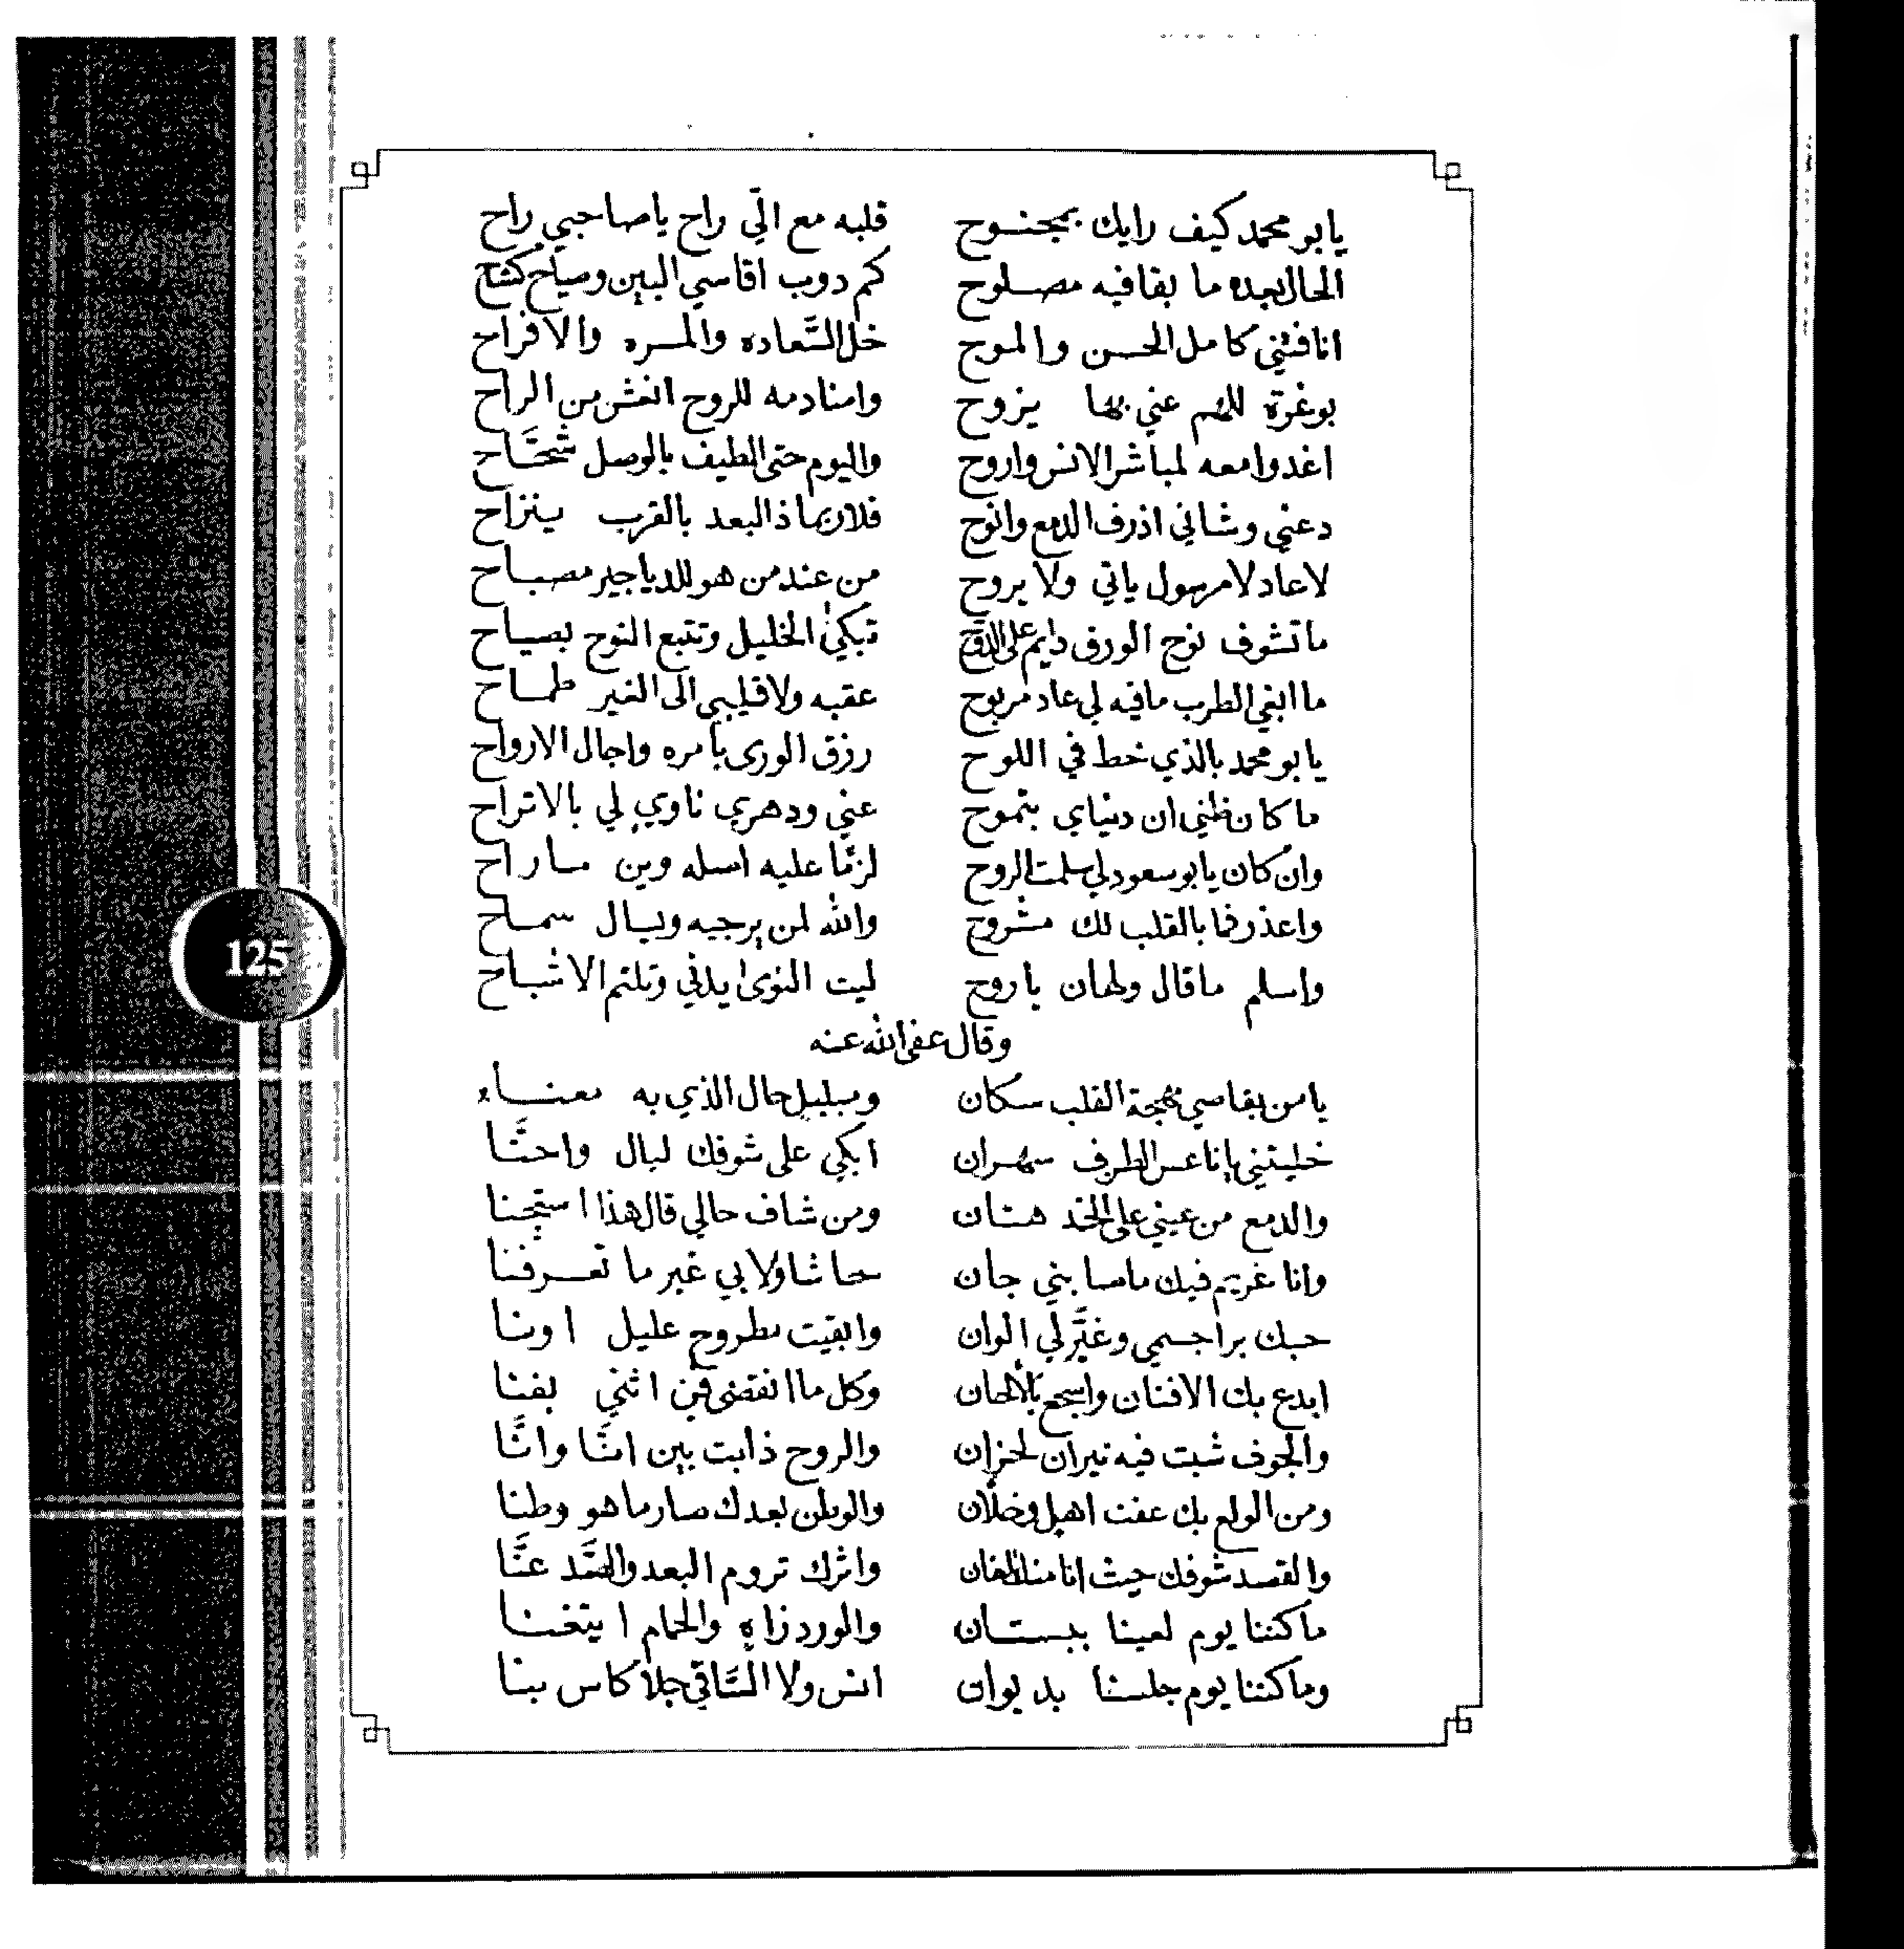 يابو محمد كيف رايك بمجنوح قلبه مع الّي راح ياصاحبي راح
الحال بعده ما بقافيه مصلوح كم دوب اقاسي البين وصياح كشاح
انا فتني كامل الحسن والموح خل السَّعاده والمسره والافراح
بوغرة للهم عني بها يزوح وامنادمه للروح انغش من الراح
اغدوا معه لمباشر الانس واروح واليوم حتى الطيف بالوصل شحَّاح
دعني وشاني اذرف الدمع وانوح فلان بماذ البعد بالقرب ينزاح
لا عاد لا مرسول ياتي ولا يروح من عند من هو للدياجير مصباح
ما تشوف نوح الورق دايم على الدوح تبكي الخليل وتتبع النوح بصياح
ما ابغي الطرب مافيه لي عاد مربوح عقبه ولا قليبي الى الغير طماح
يابو محمد بالذي خط في اللوح رزق الورى بأمره واجال الارواح
ما كان ظني ان دنياي بتموح عني ودهري ناوي لي بالاتراح
وان كان يابو سعود لي سلمت الروح لزمَّا عليه اسله وين ما راح
واعذر فما بالقلب لك مشروح والله لمن يرجيه ويسال سماح
واسلم ما قال ولهان ياروح ليت النوى يدني وتلتم الاشباح
وقال عفى الله عنه
يا من بقاصي مهجة القلب سكان ومبلبل حال الذي به معناء
خليتني يانا عس الطرف سهران ابكي على شوفك لبال واحنَّا
والدمع من عيني على الخد هتان ومن شاف حالي قال هذا استجنا
وانا غريم فيك ما صابني جان حاشا ولا بي غير ما تعرفنا
حبك برا جسمي وغيَّر لي الوان وابقيت مطروح عليل اونا
ابدع بك الافنان واسجع بالألحان وكل ما انقضى فن اثني بفنا
والجوف شبت فيه نيران لحزان والروح ذابت بين انَّا وانَّا
ومن الولع بك عفت اهل وخلّان والوطن بعدك صار ما هو وطنا
والقصد شوفك حيث انا منك لهفان واثرك تروم البعد والصَّد عنَّا
ما كننا يوم لعبنا ببستان والورد زاهٍ والحمام ايتغنا
وما كننا يوم جلسنا بديوان انس ولا السَّاقي جلا كاس بنا
125